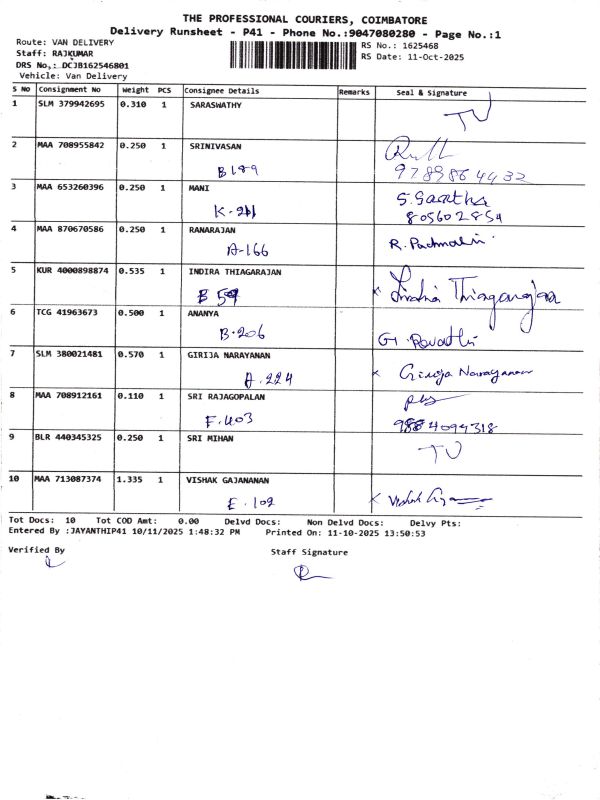 THE PROFESSIONAL COURIERS, COIMBATORE
Delivery Runsheet - P41 - Phone No.:9047080280 - Page No.:1
Route: VAN DELIVERY RS No.: 1625468
Staff: RAJKUMAR RS Date: 11-Oct-2025
DRS No.: DCJB162546801
Vehicle: Van Delivery
S No Consignment No Weight PCS Consignee Details Remarks Seal & Signature
1 SLM 379942695 0.310 1 SARASWATHY
2 MAA 708955842 0.250 1 SRINIVASAN
B 189
3 MAA 653260396 0.250 1 MANI S. Geetha
K-211 805602854
4 MAA 870670586 0.250 1 RANARAJAN R. Padmalini
A-166
5 KUR 4000898874 0.535 1 INDIRA THIAGARAJAN
B Indira Thiagarajan
6 TCG 41963673 0.500 1 ANANYA
B-206 G. Revathi
7 SLM 380021481 0.570 1 GIRIJA NARAYANAN Girija Narayanan
A.224
8 MAA 708912161 0.110 1 SRI RAJAGOPALAN
F.403 9884094318
9 BLR 440345325 0.250 1 SRI MIHAN
10 MAA 713087374 1.335 1 VISHAK GAJANANAN
E.102
Tot Docs: 10 Tot COD Amt: 0.00 Delvd Docs: Non Delvd Docs: Delvy Pts:
Entered By :JAYANTHIP41 10/11/2025 1:48:32 PM Printed On: 11-10-2025 13:50:53
Verified By Staff Signature